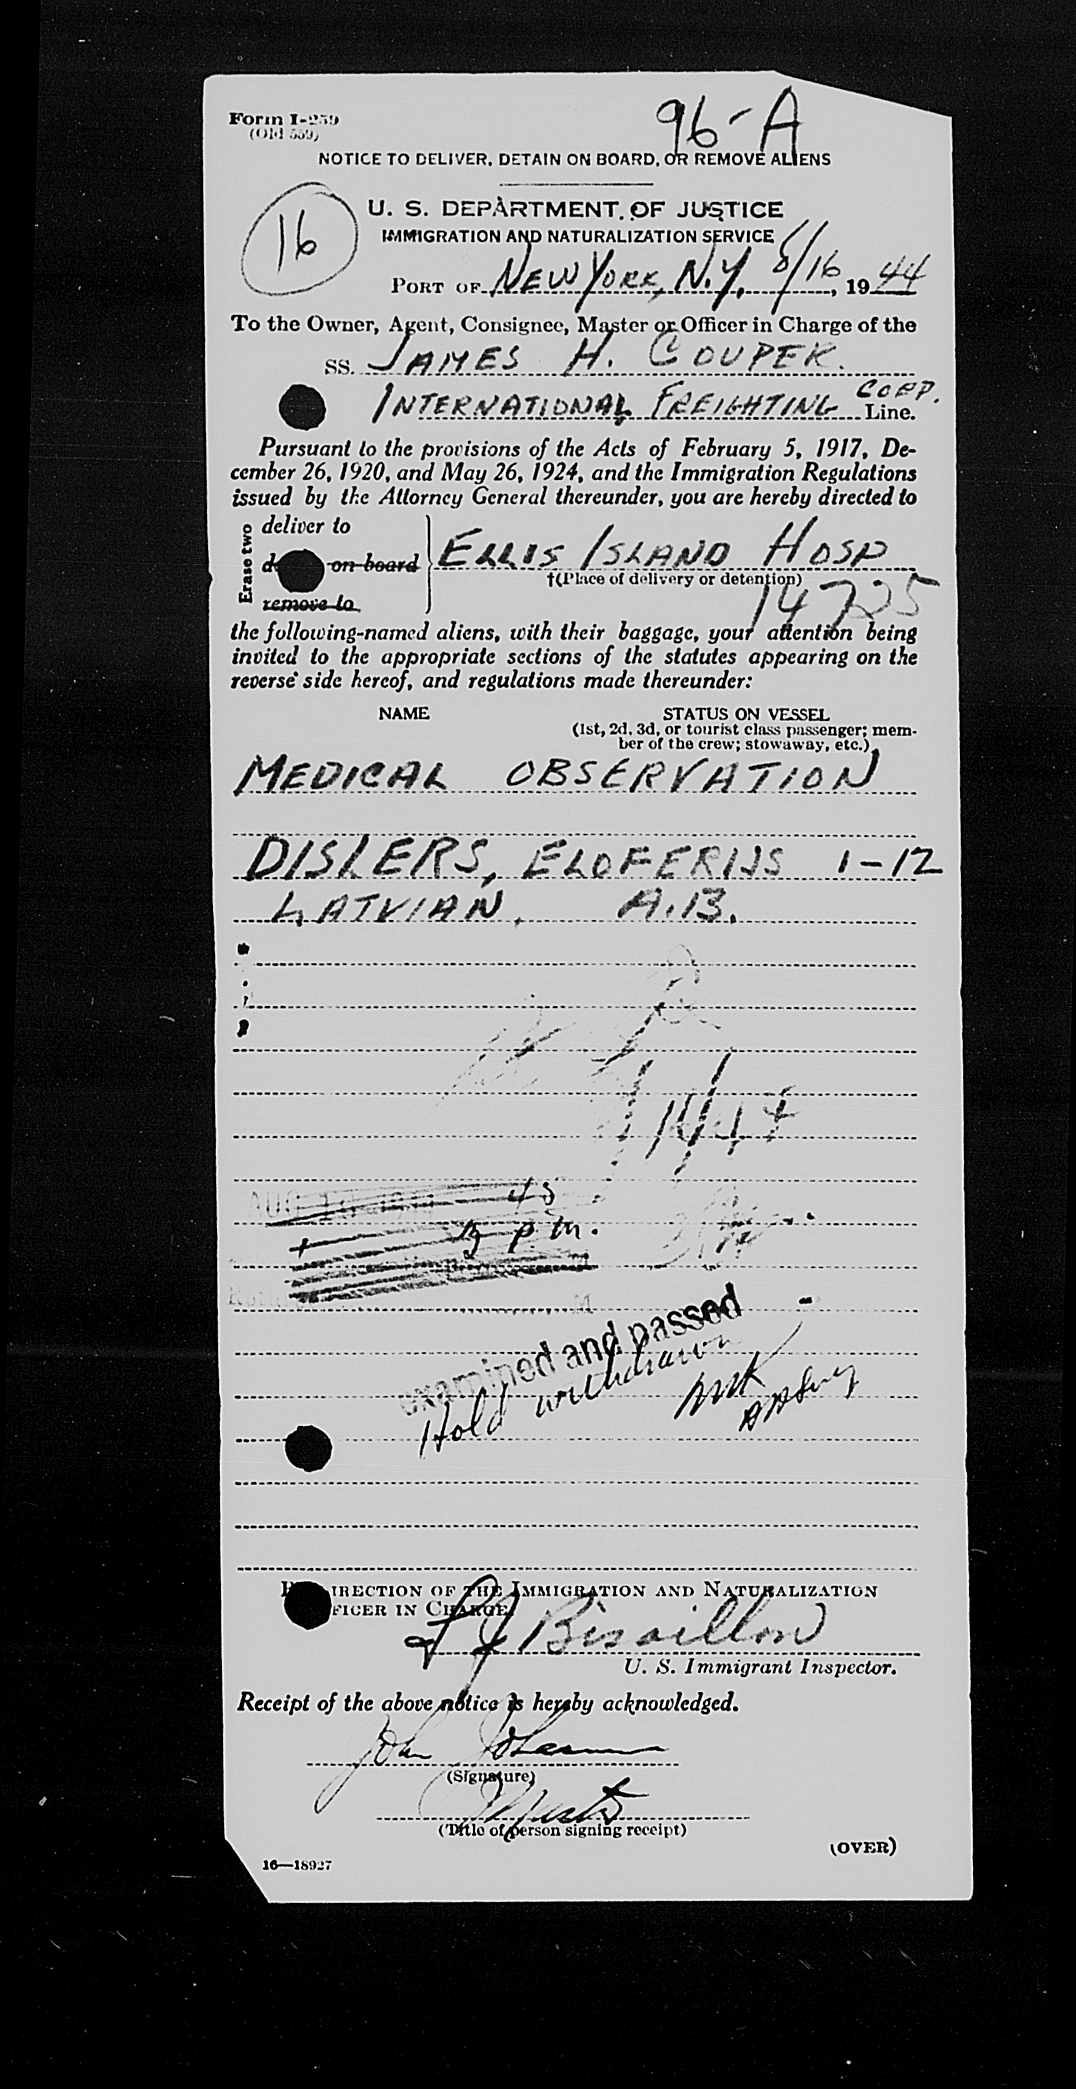 Form I-259
(Old 559)
96-A
NOTICE TO DELIVER, DETAIN ON BOARD, OR REMOVE ALIENS
16
U. S. DEPARTMENT OF JUSTICE
IMMIGRATION AND NATURALIZATION SERVICE
PORT OF NEW YORK, N.Y. 8/16, 1944
To the Owner, Agent, Consignee, Master or Officer in Charge of the
SS. JAMES H. COUPER.
INTERNATIONAL FREIGHTING CORP. Line.
Pursuant to the provisions of the Acts of February 5, 1917, De-
cember 26, 1920, and May 26, 1924, and the Immigration Regulations
issued by the Attorney General thereunder, you are hereby directed to
Erase two
deliver to
on board
remove to
ELLIS ISLAND HOSP
†(Place of delivery or detention)
14725
the following-named aliens, with their baggage, your attention being
invited to the appropriate sections of the statutes appearing on the
reverse side hereof, and regulations made thereunder:
NAME STATUS ON VESSEL
(1st, 2d, 3d, or tourist class passenger; mem-
ber of the crew; stowaway, etc.)
MEDICAL OBSERVATION
DISLERS, ELOFERIJS 1-12
LATVIAN. A.B.
AUG
45
3 p.m.
examined and passed
Hold withdrawn
IRECTION OF THE IMMIGRATION AND NATURALIZATION
FICER IN CHARGE.
L J Bisaillon
U. S. Immigrant Inspector.
Receipt of the above notice is hereby acknowledged.
John
(Signature)
(Title of person signing receipt)
(OVER)
16—18927